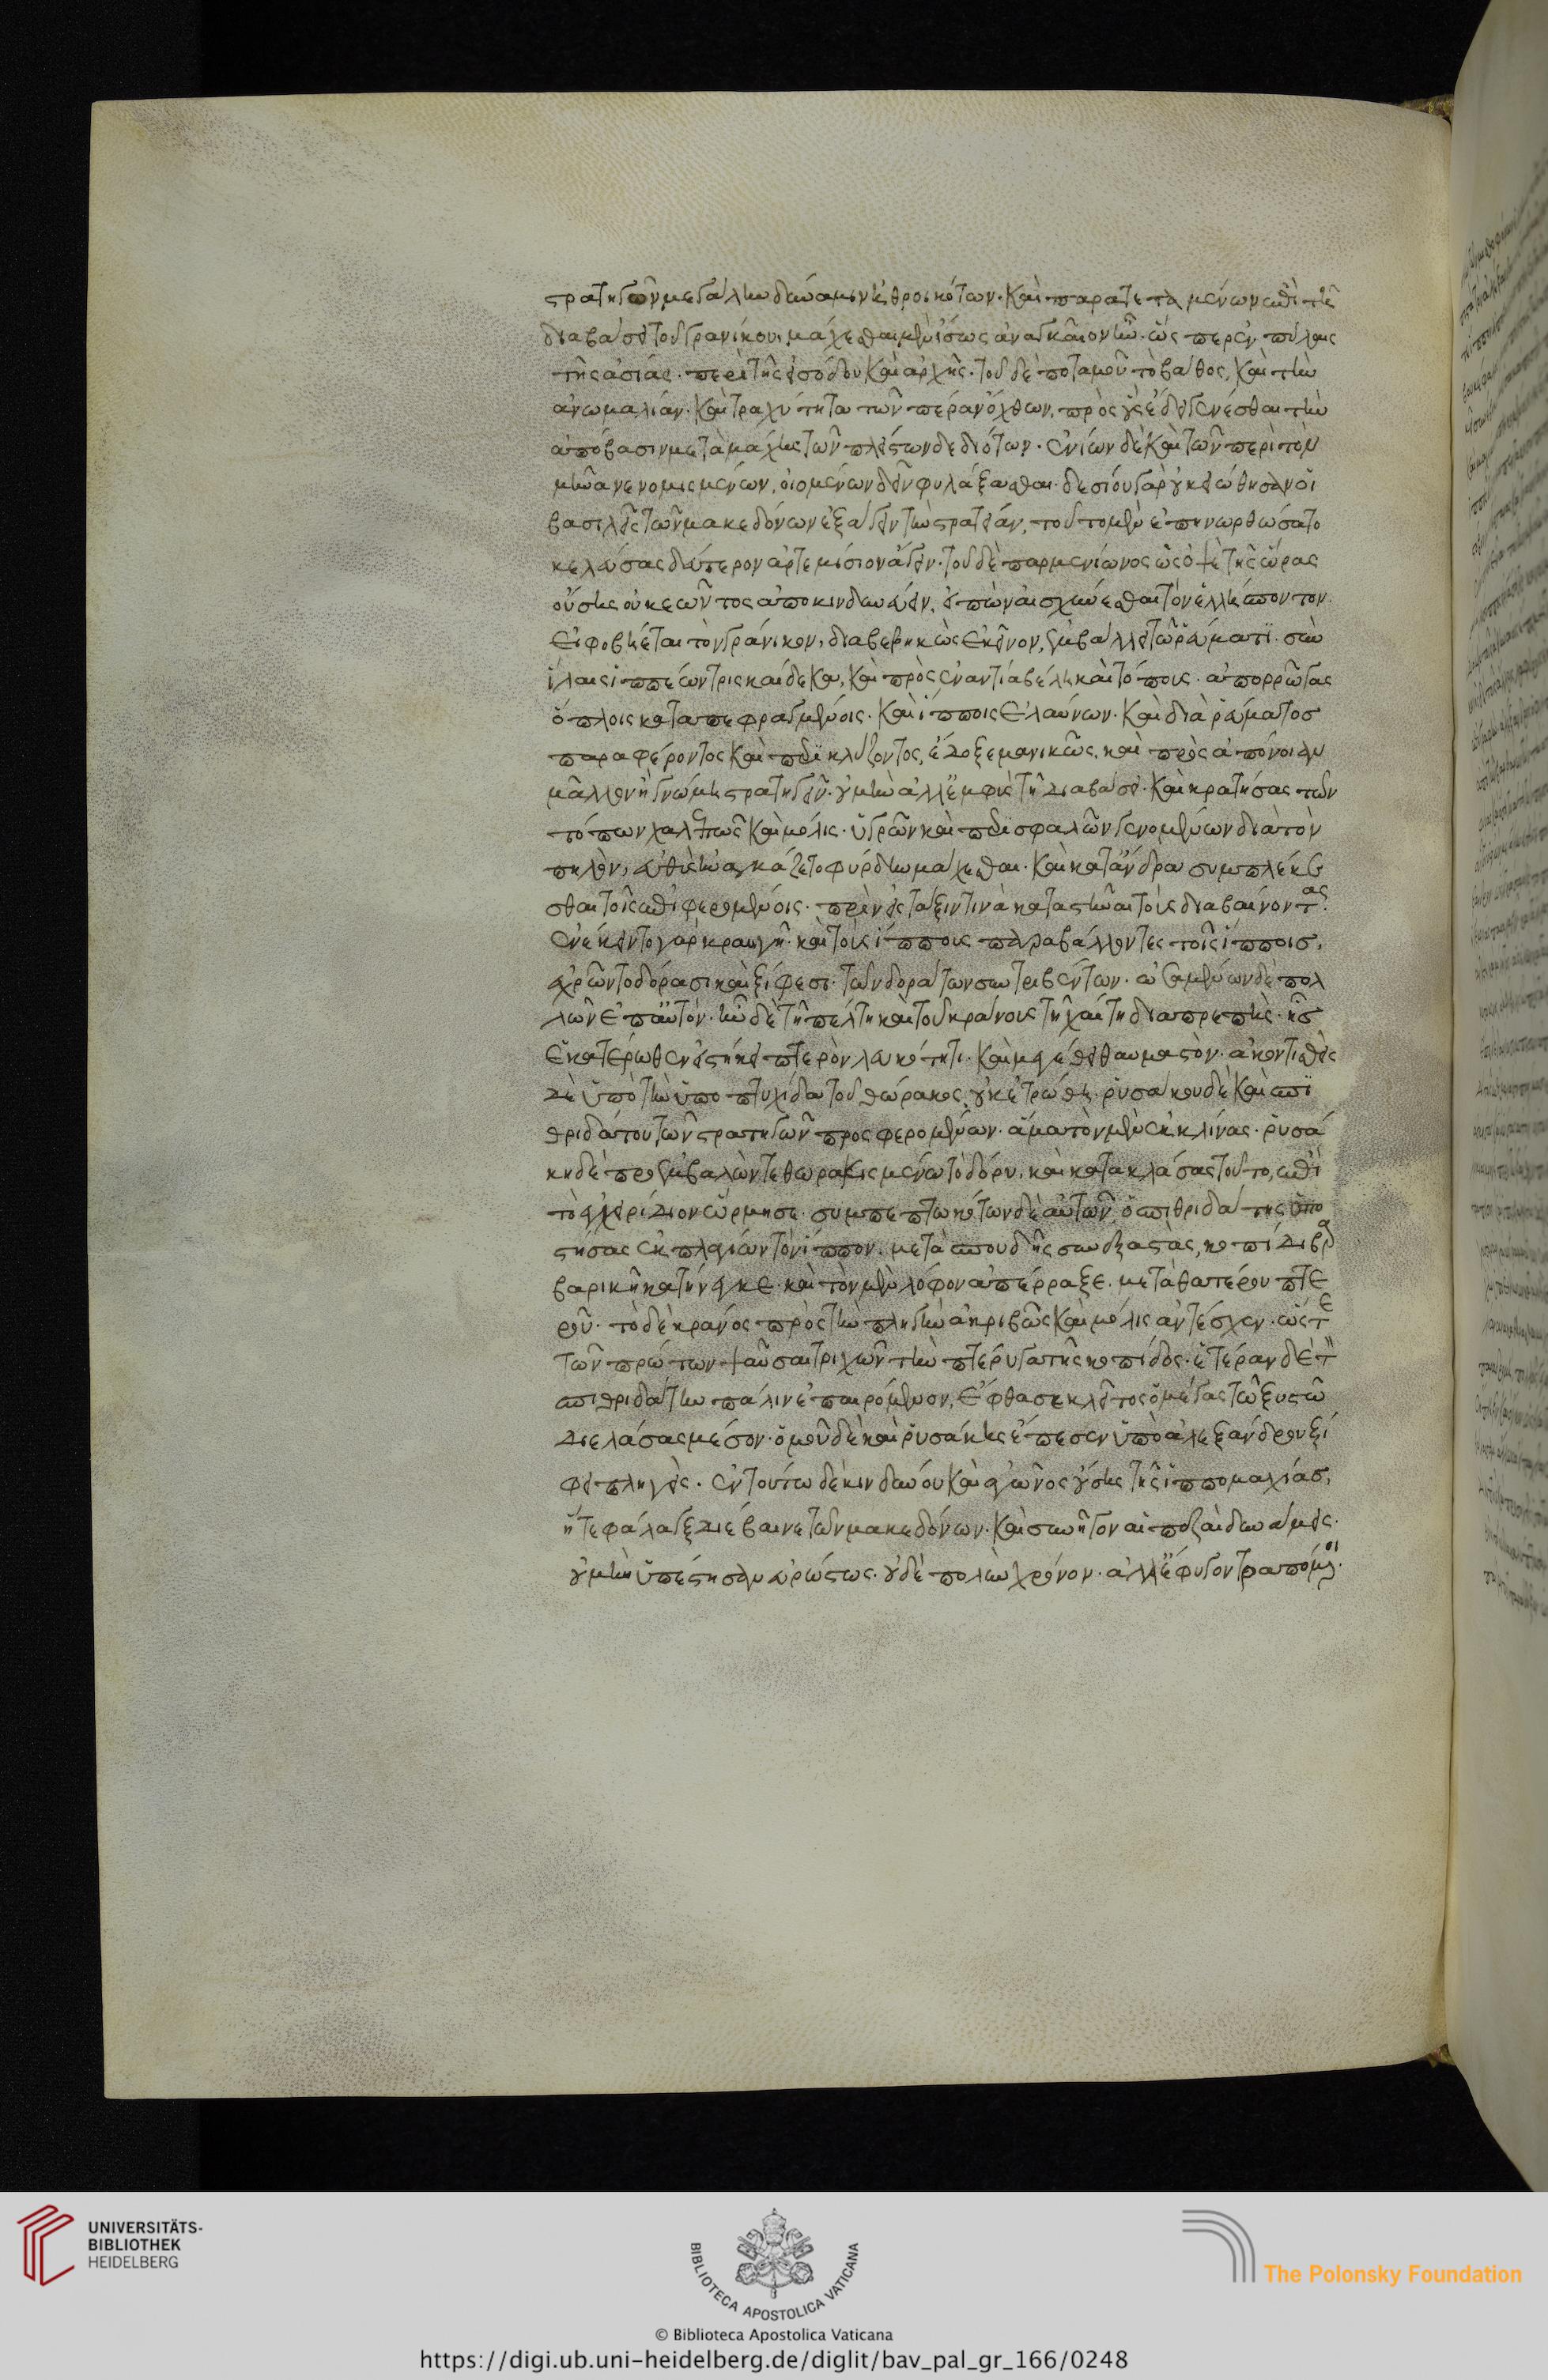 στρατηγῶν μεγάλην δύναμιν ἠθροικότων· καὶ παρατεταγμένων ἐπὶ τῆ
διαβάσει τοῦ γρανίκου, μάχεσθαι μὲν ἴσως ἀναγκαῖον ἦν· ὥσπερ ἐν πύλαις
τῆς ἀσίας· περὶ τῆς εἰσόδου καὶ ἀρχῆς· τοῦ δὲ ποταμοῦ τὸ βάθος, καὶ τὴν
ἀνωμαλίαν· καὶ τραχύτητα τῶν πέραν ὄχθων, πρὸς οὓς ἔδει γενέσθαι τὴν
ἀπόβασιν μετὰ μάχης τῶν πλείστων δεδιότων· ἐνίων δὲ καὶ τῶν περὶ τὸν
μῆνα νενομισμένων, οἰομένων δεῖν φυλάξασθαι· δεσίου γὰρ οὐκ εἰώθησαν οἱ
βασιλεῖς τῶν μακεδόνων ἐξάγειν τὴν στρατείαν, τοῦτο μὲν ἐπηνωρθώσατο
κελεύσας δεύτερον ἀρτεμίσιον ἄγειν· τοῦ δὲ παρμενίωνος ὡς ὀψὲ τῆς ὥρας
οὔσης οὐκ ἐῶντος ἀποκινδυνεύειν, εἰπὼν αἰσχύνεσθαι τὸν ἑλλήσποντον
εἰ φοβήσεται τὸν γράνικον, διαβεβηκὼς ἐκεῖνον, ἐμβάλλει τῷ ῥεύματι· σὺν
ἴλαις ἱππέων τρισκαίδεκα, καὶ πρὸς ἐναντία βέλη καὶ τόπους· ἀπορρῶγας
ὅπλοις καταπεφραγμένοις· καὶ ἵπποις ἐλαύνων· καὶ διὰ ῥεύματος
παραφέροντος καὶ περικλύζοντος, ἔδοξε μανικῶς, καὶ πρὸς ἀπόνοιαν
μᾶλλον ἢ γνώμῃ στρατηγεῖν· οὐ μὴν ἀλλ' ἐμφὺς τῆ διαβάσει· καὶ κρατήσας τῶν
τόπων χαλεπῶς καὶ μόλις· ὑγρῶν καὶ περισφαλῶν γενομένων διὰ τὸν
πηλόν, εὐθὺς ἠναγκάζετο φύρδην μάχεσθαι· καὶ κατ' ἄνδρα συμπλέκε
σθαι τοῖς ἐπιφερομένοις· πρὶν εἰς τάξιν τινὰ καταστῆναι τοὺς διαβαίνοντας·
ἐνέκειντο γὰρ κραυγῆ· καὶ τοὺς ἵππους παραβάλλοντες τοῖς ἵπποις,
ἐχρῶντο δόρασι καὶ ξίφεσι· τῶν δοράτων συντριβέντων· ὠσαμένων δὲ πολ
λῶν ἐπ' αὐτόν· ἦν δὲ τῆ πέλτη καὶ τοῦ κράνους τῆ χαίτη διαπρεπής· ἧς
ἑκατέρωθεν εἱστήκει πτερὸν λευκότητι· καὶ μεγέθει θαυμαστὸν· ἀκοντισθεὶς
δὲ ὑπὸ τὴν ὑποπτυχίδα τοῦ θώρακος, οὐκ ἐτρώθη· ῥυσάκου δὲ καὶ σπι
θριδάτου τῶν στρατηγῶν προσφερομένων· ἅμα τὸν μὲν ἐκκλίνας· ῥυσά
κη δὲ προεμβαλὼν τεθωρακισμένω τὸ δόρυ, καὶ κατακλάσας τοῦτο, ἐπὶ
τὸ ἐγχειρίδιον ὥρμησε· συμπεπτωκότων δὲ αὐτῶν, ὁ σπιθριδάτης ὑπο
στήσας ἐκ πλαγίων τὸν ἵππον· μετὰ σπουδῆς συνεξαναστὰς, κοπίδι βαρ
βαρικῆ κατήνεγκε· καὶ τὸν μὲν λόφον ἀπέρραξε· μετὰ θατέρου πτε
ροῦ· τὸ δὲ κράνος πρὸς τὴν πληγὴν ἀκριβῶς καὶ μόλις ἀντέσχεν· ὥστε
τῶν πρώτων ψαῦσαι τριχῶν τὴν πτέρυγα τῆς κοπίδος· ἑτέραν δὲ τὸν
σπιθριδάτην πάλιν ἐπαιρόμενον, ἔφθασε κλεῖτος ὁ μέγας τῷ ξυστῷ
διελάσας μέσον· ὁμοῦ δὲ καὶ ῥυσάκης ἔπεσεν ὑπὸ ἀλεξάνδρου ξί
φει πληγείς· ἐν τούτω δὲ κινδύνου καὶ ἀγῶνος οὔσης τῆς ἱππομαχίας,
ἥ τε φάλαγξ διέβαινε τῶν μακεδόνων· καὶ συνῆγον αἱ πεζαὶ δυνάμεις·
οὐ μὴν ὑπέστησαν εὐρώστως· οὐδὲ πολὺν χρόνον· ἀλλ' ἔφυγον τραπόμενοι·
UNIVERSITÄTS-
BIBLIOTHEK
HEIDELBERG
BIBLIOTECA APOSTOLICA VATICANA
The Polonsky Foundation
© Biblioteca Apostolica Vaticana
https://digi.ub.uni-heidelberg.de/diglit/bav_pal_gr_166/0248